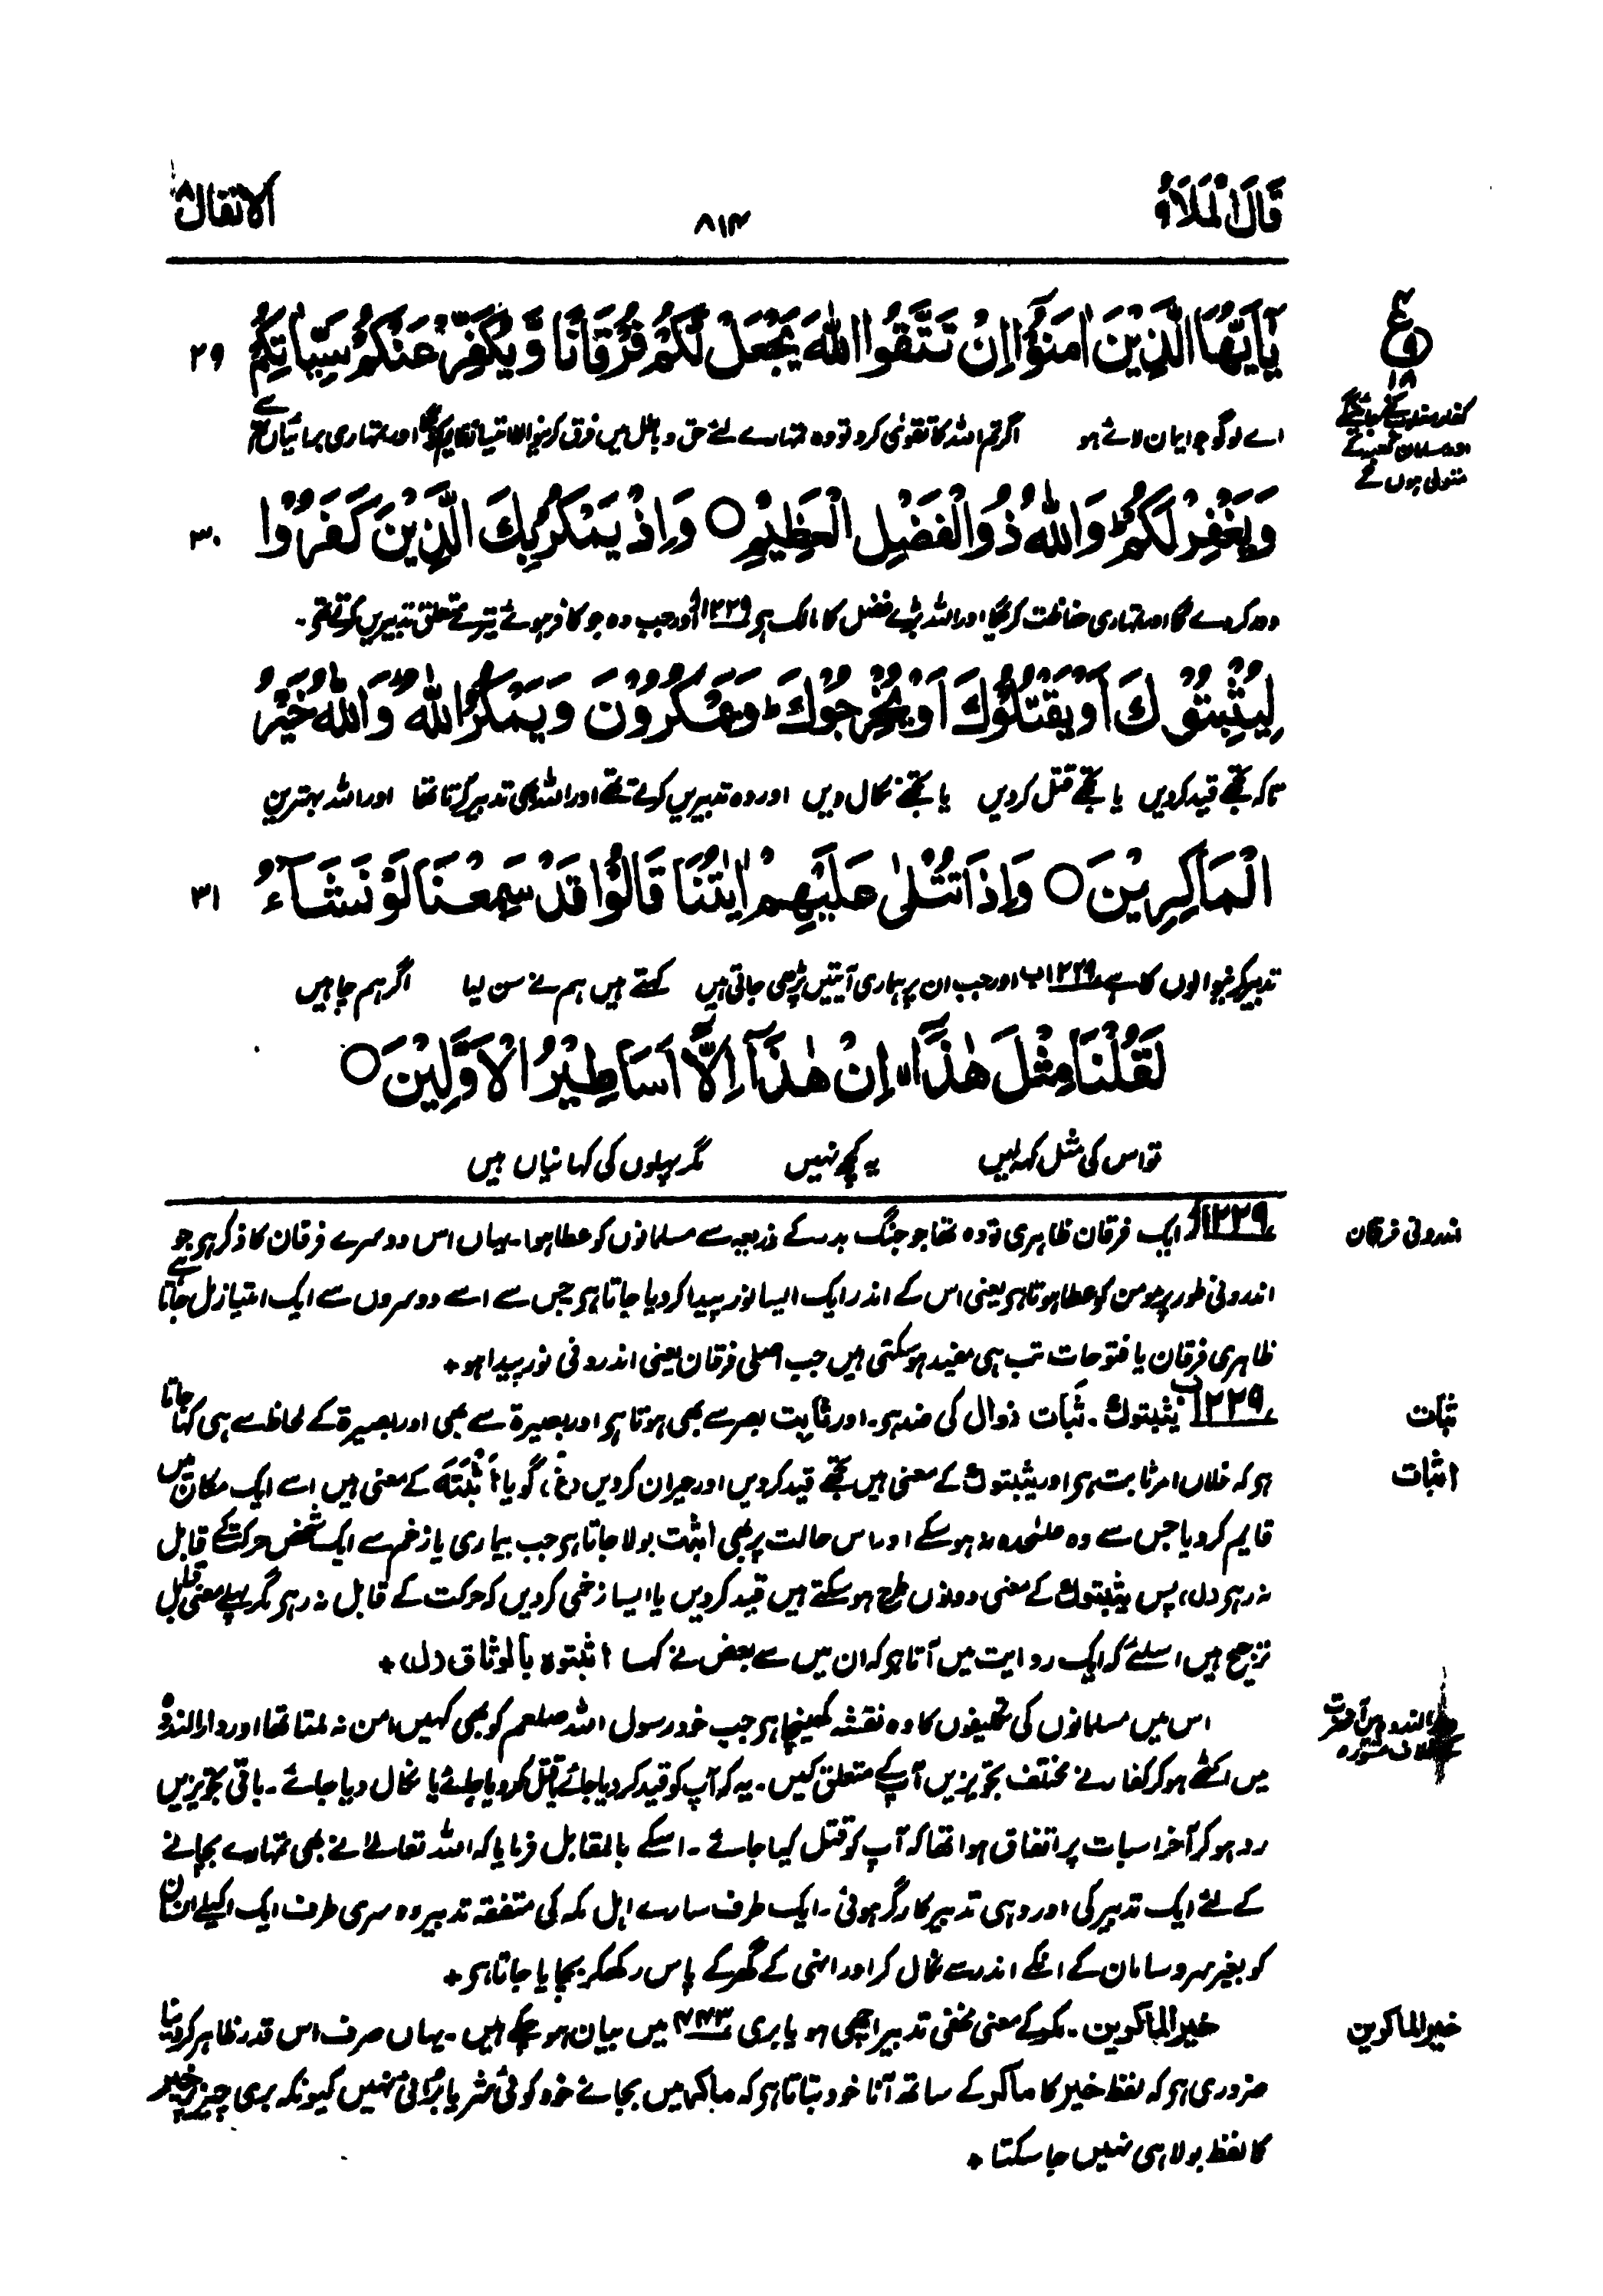 قَالَ الْمَلَاُ ٩
٨١٣
الانفال ٨
يٰٓاَيُّهَا الَّذِيْنَ اٰمَنُوْٓا اِنْ تَتَّقُوا اللّٰهَ يَجْعَلْ لَّكُمْ فُرْقَانًا وَّيُكَفِّرْ عَنْكُمْ سَيِّاٰتِكُمْ ٢٩
ع
٩
١٨
اے لوگو جو ایمان لائے ہو اگر تم اللہ کا تقویٰ کرو تو وہ تمہارے لئے حق و باطل میں فرق کرنیوالا امتیاز قایم کریگا اور تمہاری برائیاں تم سے
کفار مغلوب کئے جائینگے
اور مسلمان کعبہ کے
متولی ہوں گے
وَيَغْفِرْ لَكُمْ ؕ وَاللّٰهُ ذُو الْفَضْلِ الْعَظِيْمِ ○ وَاِذْ يَمْكُرُ بِكَ الَّذِيْنَ كَفَرُوْا ٣٠
دور کر دے گا اور تمہاری حفاظت کریگا اور اللہ بڑے فضل کا مالک ہو ١٢٢٩ا اور جب وہ جو کافر ہوئے تیرے متعلق تدبیریں کرتے تھے۔
لِيُثْبِتُوْكَ اَوْ يَقْتُلُوْكَ اَوْ يُخْرِجُوْكَ ؕ وَيَمْكُرُوْنَ وَيَمْكُرُ اللّٰهُ ؕ وَاللّٰهُ خَيْرُ
تاکہ تجھے قید کر دیں یا تجھے قتل کر دیں یا تجھے نکال دیں اور وہ تدبیریں کرتے تھے اور اللہ بھی تدبیر کرتا تھا اور اللہ بہترین
الْمَاكِرِيْنَ ○ وَاِذَا تُتْلٰى عَلَيْهِمْ اٰيٰتُنَا قَالُوْا قَدْ سَمِعْنَا لَوْ نَشَآءُ ٣١
تدبیر کرنیوالوں کا ہے ١٢٢٩ب اور جب ان پر ہماری آیتیں پڑھی جاتی ہیں کہتے ہیں ہم نے سن لیا اگر ہم چاہیں
لَقُلْنَا مِثْلَ هٰذَآ ۙ اِنْ هٰذَآ اِلَّآ اَسَاطِيْرُ الْاَوَّلِيْنَ ○
تو اس کی مثل کہہ لیں یہ کچھ نہیں مگر پہلوں کی کہانیاں ہیں
اندرونی فرقان
١٢٢٩ا ایک فرقان ظاہری تو وہ تھا جو جنگ بدر کے ذریعہ سے مسلمانوں کو عطا ہوا۔ یہاں اس دوسرے فرقان کا ذکر ہو جو
اندرونی طور پر مومن کو عطا ہوتا ہو یعنی اس کے اندر ایک ایسا نور پیدا کر دیا جاتا ہو جس سے اسے دوسروں سے ایک امتیاز مل جاتا ہے
ظاہری فرقان یا فتوحات تب ہی مفید ہو سکتی ہیں جب اصلی فرقان یعنی اندرونی نور پیدا ہو +
ثبات
١٢٢٩ب یثبتوک۔ ثَبَات زوال کی ضد ہو۔ اور ثابت بصر سے بھی ہوتا ہو اور بصیرۃ سے بھی اور بصیرۃ کے لحاظ سے ہی کہا جاتا
اثبات
ہو کہ فلاں امر ثابت ہو اور یثبتوک کے معنی ہیں تجھے قید کر دیں اور حیران کر دیں (غ)، گویا اَثْبَتَہٗ کے معنی ہیں اسے ایک مکان میں
قایم کر دیا جس سے وہ علیٰحدہ نہ ہو سکے اور اس حالت پر بھی اثبت بولا جاتا ہو جب بیماری یا زخم سے ایک شخص حرکت کے قابل
نہ رہے (ل)، پس یثبتوک کے معنی دونوں طرح ہو سکتے ہیں قید کر دیں یا ایسا زخمی کر دیں کہ حرکت کے قابل نہ رہو مگر پہلے معنی قابل
ترجیح ہیں اسلئے کہ ایک روایت میں آتا ہو کہ ان میں سے بعض نے کہا اثبتوہ بالوثاق (ل) +
دار الندوہ میں آنحضرت
کے خلاف مشورہ
اس میں مسلمانوں کی تکلیفوں کا وہ نقشہ کھینچا ہو جب خود رسول اللہ صلعم کو بھی کہیں امن نہ ملتا تھا اور دار الندوہ
میں اکٹھے ہو کر کفار نے مختلف تجویزیں آپ کے متعلق کیں۔ یہ کہ آپ کو قید کر دیا جائے یا قتل کر دیا جائے یا نکال دیا جائے۔ باقی تجویزیں
رد ہو کر آخر اسبات پر اتفاق ہوا تھا کہ آپ کو قتل کیا جائے۔ اسکے بالمقابل فرمایا کہ اللہ تعالےٰ نے بھی تمہارے بچانے
کے لئے ایک تدبیر کی اور وہی تدبیر کارگر ہوئی۔ ایک طرف سارے اہل مکہ کی متفقہ تدبیر دوسری طرف ایک اکیلے انسان
کو بغیر سروسامان کے انکے اندر سے نکال کر اور انہی کے گھر کے پاس رکھکر بچایا جاتا ہو +
خیر الماکرین
خیر الماکرین۔ مکر کے معنی مخفی تدبیر اچھی ہو یا بری ٤٤٣ میں بیان ہو چکے ہیں۔ یہاں صرف اس قدر ظاہر کر دینا
ضروری ہو کہ لفظ خیر کا ماکر کے ساتھ آنا خود بتاتا ہو کہ ماکر میں بجائے خود کوئی شر یا برائی نہیں کیونکہ بری چیز پر خیر
کا لفظ بولا ہی نہیں جا سکتا +